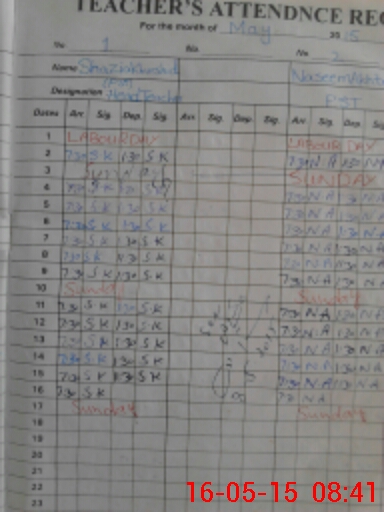 TEACHER'S ATTENDNCE REG
For the month of May 2015
No. 1 No. No. 2
Name Shazia Khurshid Naseem Akhta
Designation Head Teacher PST
Dates Arr. Sig. Dep. Sig. Arr. Sig. Dep. Sig. Arr. Sig. Dep. Sig
1 LABOUR DAY LABOUR DAY
2 730 S K 130 S K 730 N A 130 N A
3 SUNDAY SUNDAY
4 730 S K 130 S K 730 N A 130 N A
5 730 S K 130 S K 730 N A 130 N A
6 730 S K 130 S K 730 N A 130 N A
7 730 S K 130 S K 730 N A 130 N A
8 730 S K 130 S K 730 N A 130 N A
9 730 S K 130 S K 730 N A 130 N A
10 Sunday Sunday
11 730 S K 130 S K 730 N A 130 N A
12 730 S K 130 S K 730 N A 130 N A
13 730 S K 130 S K 730 N A 130 N A
14 730 S K 130 S K 730 N A 130 N A
15 730 S K 130 S K 730 N A 130 N A
16 730 S K 730 N A
17 Sunday Sunday
18
19
20
21
22
23
16-05-15 08:41